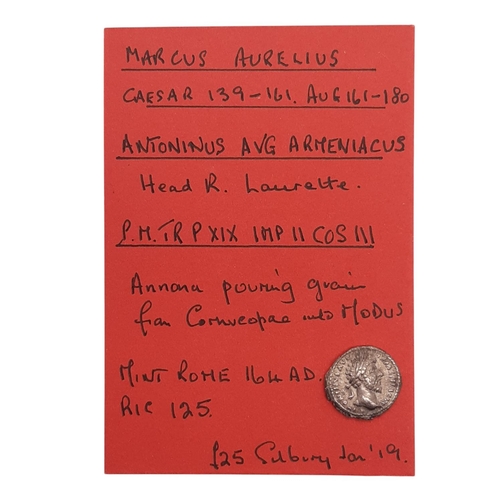 MARCUS AURELIUS
CAESAR 139-161. AUG 161-180
ANTONINUS AVG ARMENIACUS
Head R. Laureate.
P.M. TR P XIX IMP II COS III
Annona pouring grain
from Cornucopae into MODUS
MINT ROME 164 AD.
RIC 125.
£25 Silbury Jan '19.